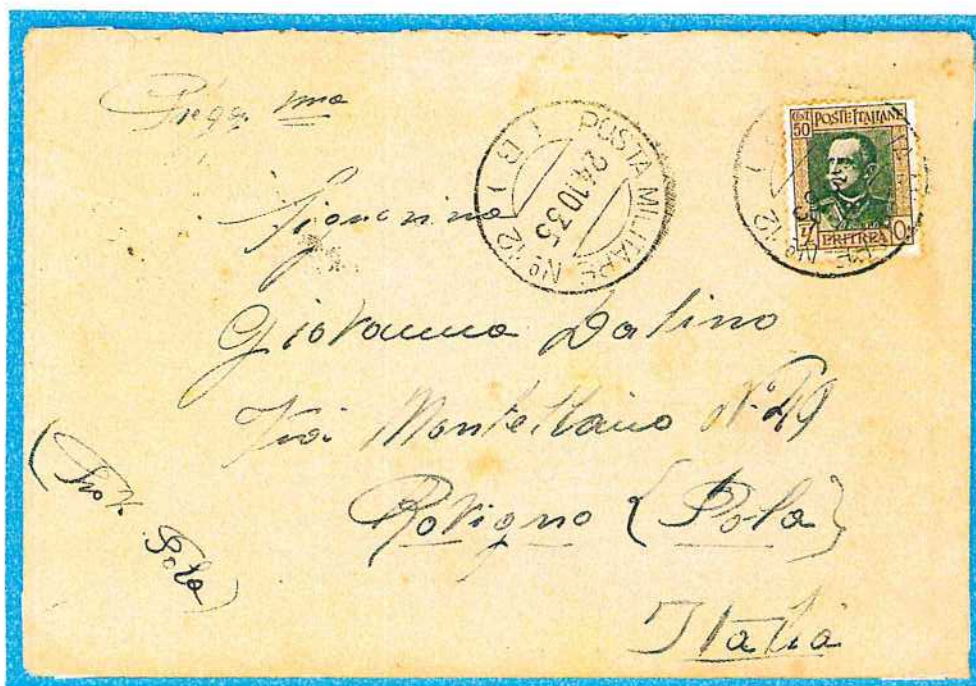 Preg. ma
POSTA MILITARE No 12
24.10.35
( B )
CENT 50 POSTE ITALIANE
ERITREA
Signorina
Giovanna Dalino
Via Montalbano No 49
Rovigno {Pola}
(Prov. Pola)
Italia